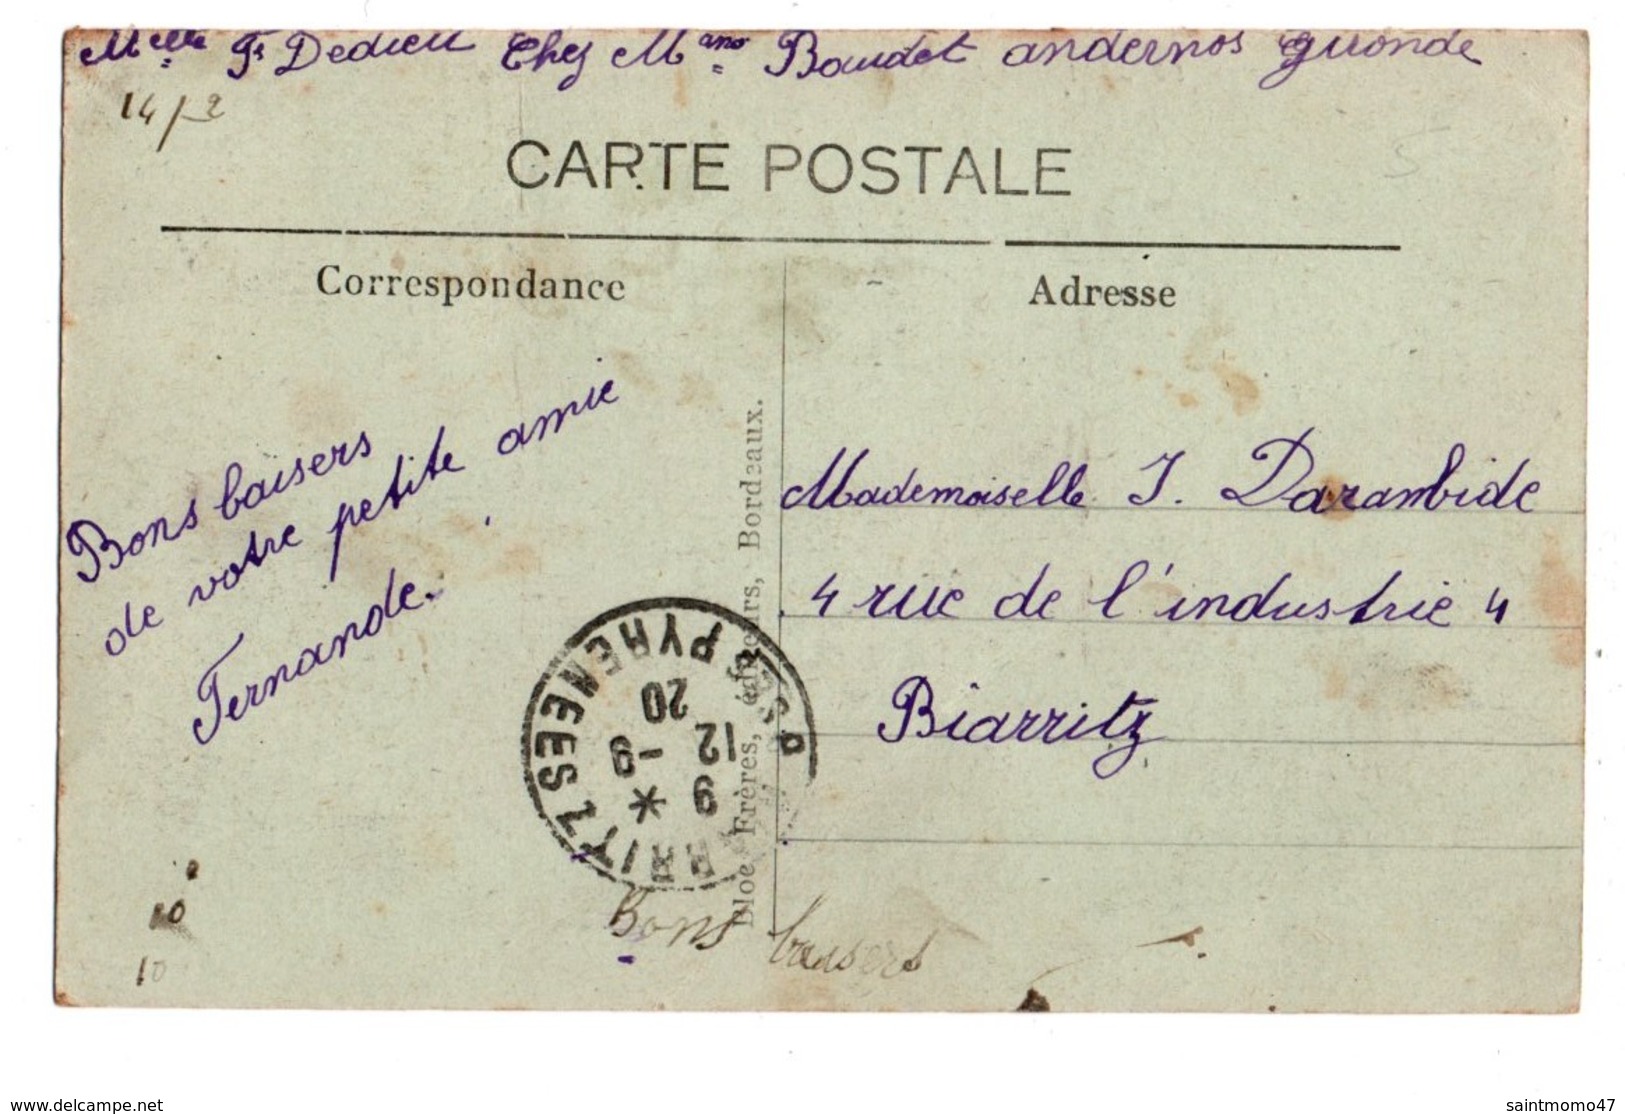 Melle F. Dedieu Chez Mme Baudet andernos gironde
CARTE POSTALE
Correspondance
Adresse
Bons baisers
de votre petite amie
Fernande.
Bloc Frères, éditeurs, Bordeaux.
Mademoiselle J. Darambide
4 rue de l'industrie 4
Biarritz
RRITZ
BSES PYRENEES
9
12
-9
20
Bons baisers
10
10
5
www.delcampe.net
saintmomo47